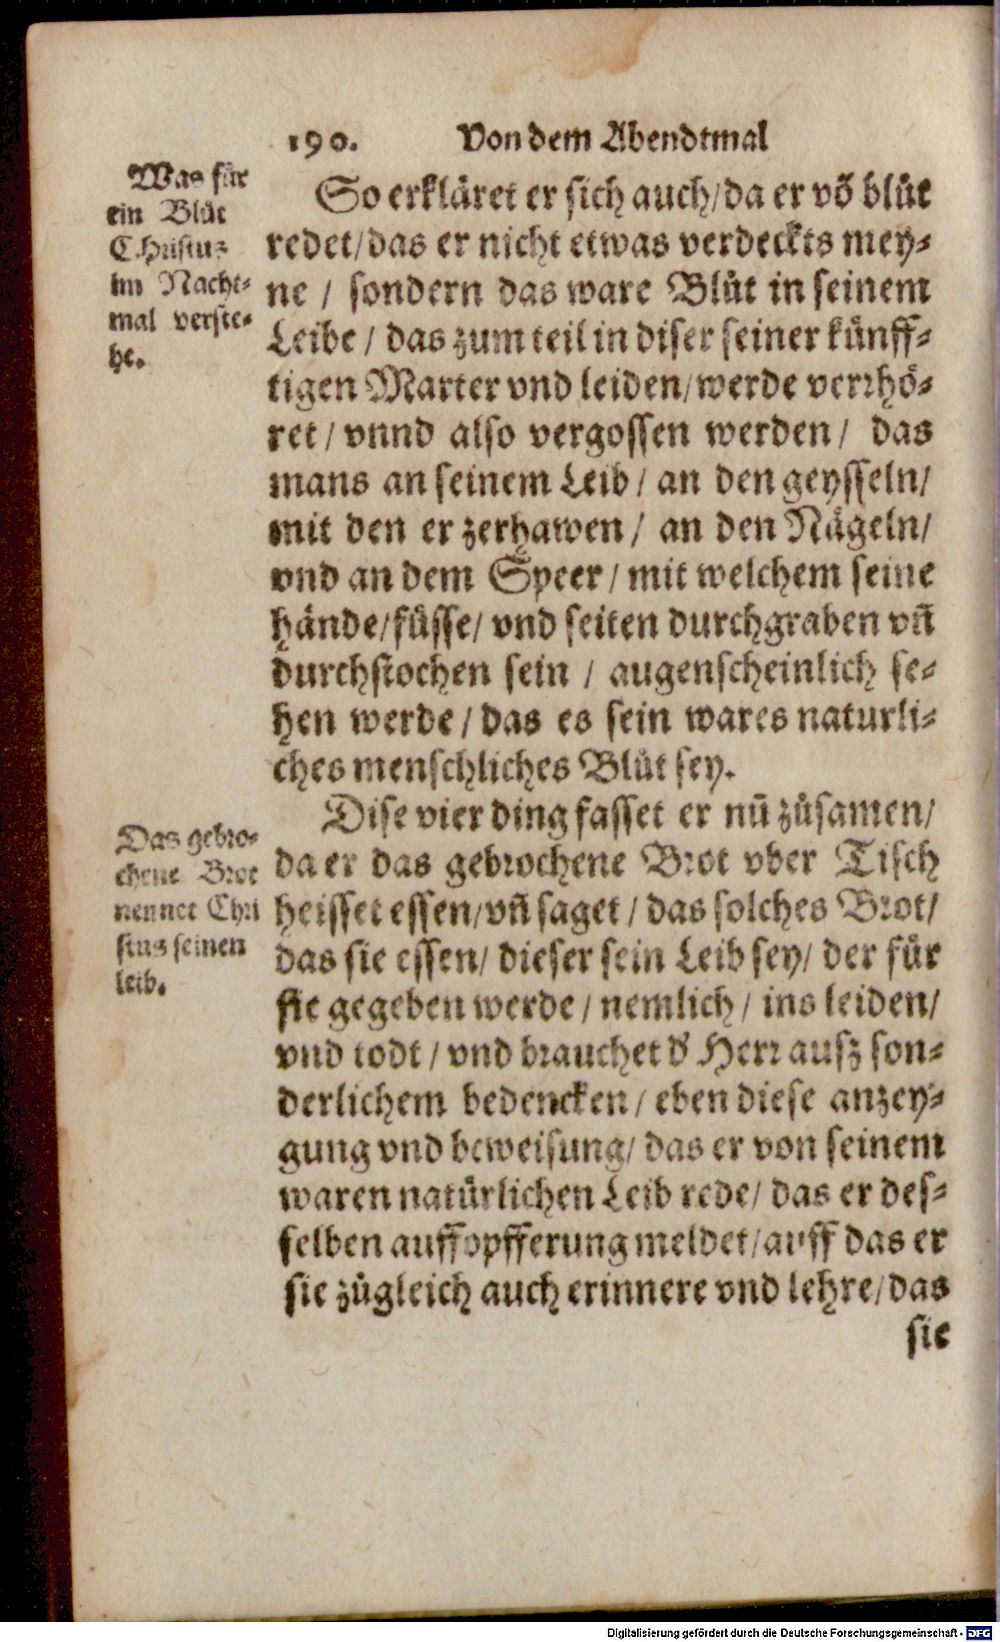 190. Von dem Abendtmal
Was für
ein Blůt
Christus
im Nacht-
mal verste-
he.
So erkläret er sich auch/da er võ blůt
redet/das er nicht etwas verdeckts mey-
ne / sondern das ware Blůt in seinem
Leibe / das zum teil in diser seiner künff-
tigen Marter vnd leiden/werde verrhö-
ret / vnnd also vergossen werden / das
mans an seinem Leib / an den geysseln/
mit den er zerhawen / an den Nägeln/
vnd an dem Speer / mit welchem seine
hände/füsse/ vnd seiten durchgraben vñ
durchstochen sein / augenscheinlich se-
hen werde / das es sein wares naturli-
ches menschliches Blůt sey.
Das gebro-
chene Brot
nennet Chri
stus seinen
leib.
Dise vier ding fasset er nũ zůsamen/
da er das gebrochene Brot vber Tisch
heisset essen/vñ saget / das solches Brot/
das sie essen/ dieser sein Leib sey/ der für
sie gegeben werde / nemlich / ins leiden/
vnd todt / vnd brauchet d' Herr ausz son-
derlichem bedencken / eben diese anzey-
gung vnd beweisung/ das er von seinem
waren natürlichen Leib rede/ das er des-
selben auffopfferung meldet/auff das er
sie zůgleich auch erinnere vnd lehre/das
sie
Digitalisierung gefördert durch die Deutsche Forschungsgemeinschaft - DFG